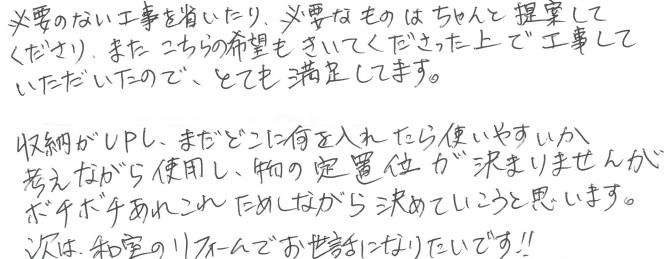 必要のない工事を省いたり、必要なものはちゃんと提案して
くださり、また こちらの希望も きいてくださった上で工事して
いただいたので、とても満足してます。
収納がUPし、まだどこに何を入れたら使いやすいか
考えながら使用し、物の定置位が決まりませんが
ボチボチあれこれ ためしながら決めていこうと思います。
次は、和室のリフォームでお世話になりたいです!!